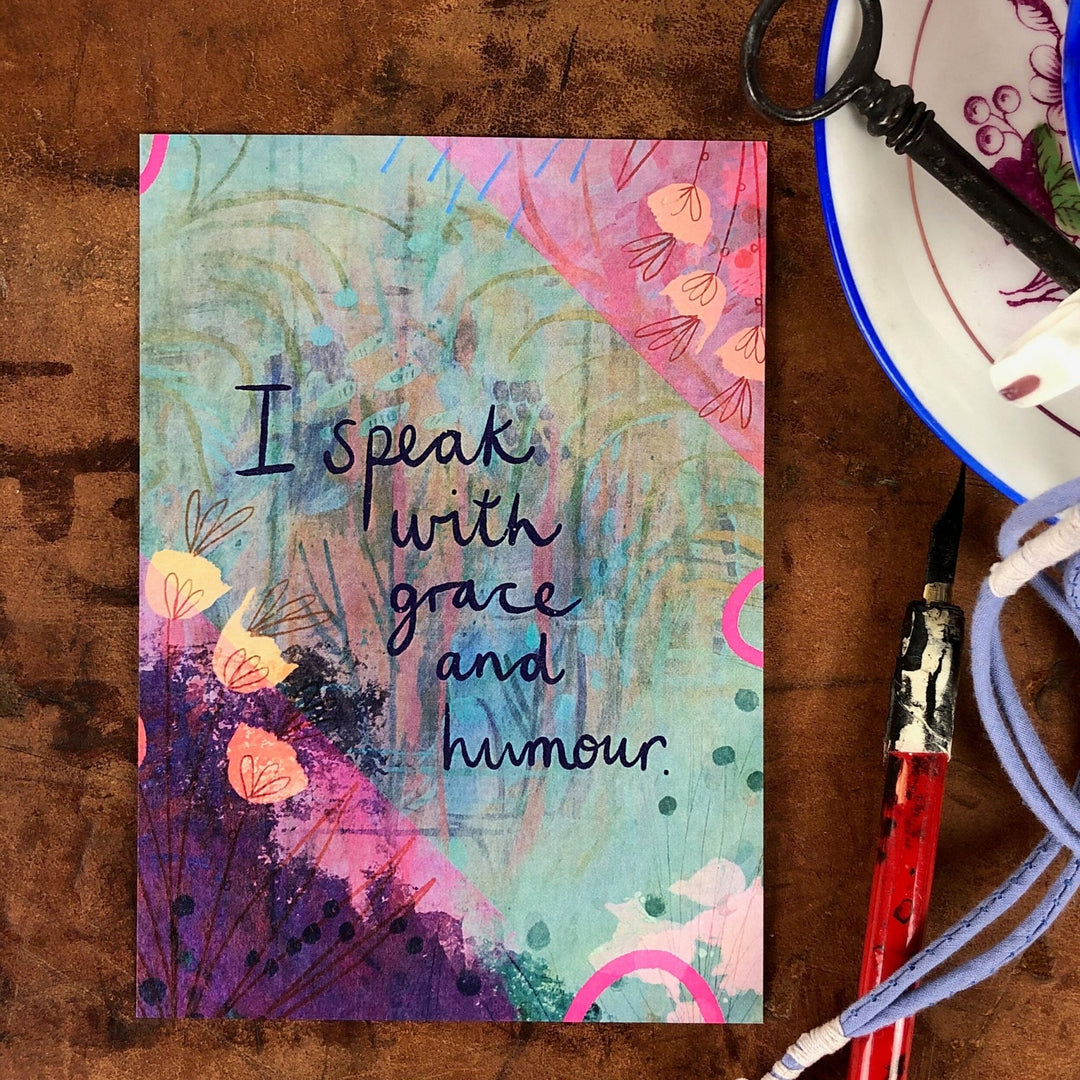 I speak
with
grace
and
humour.